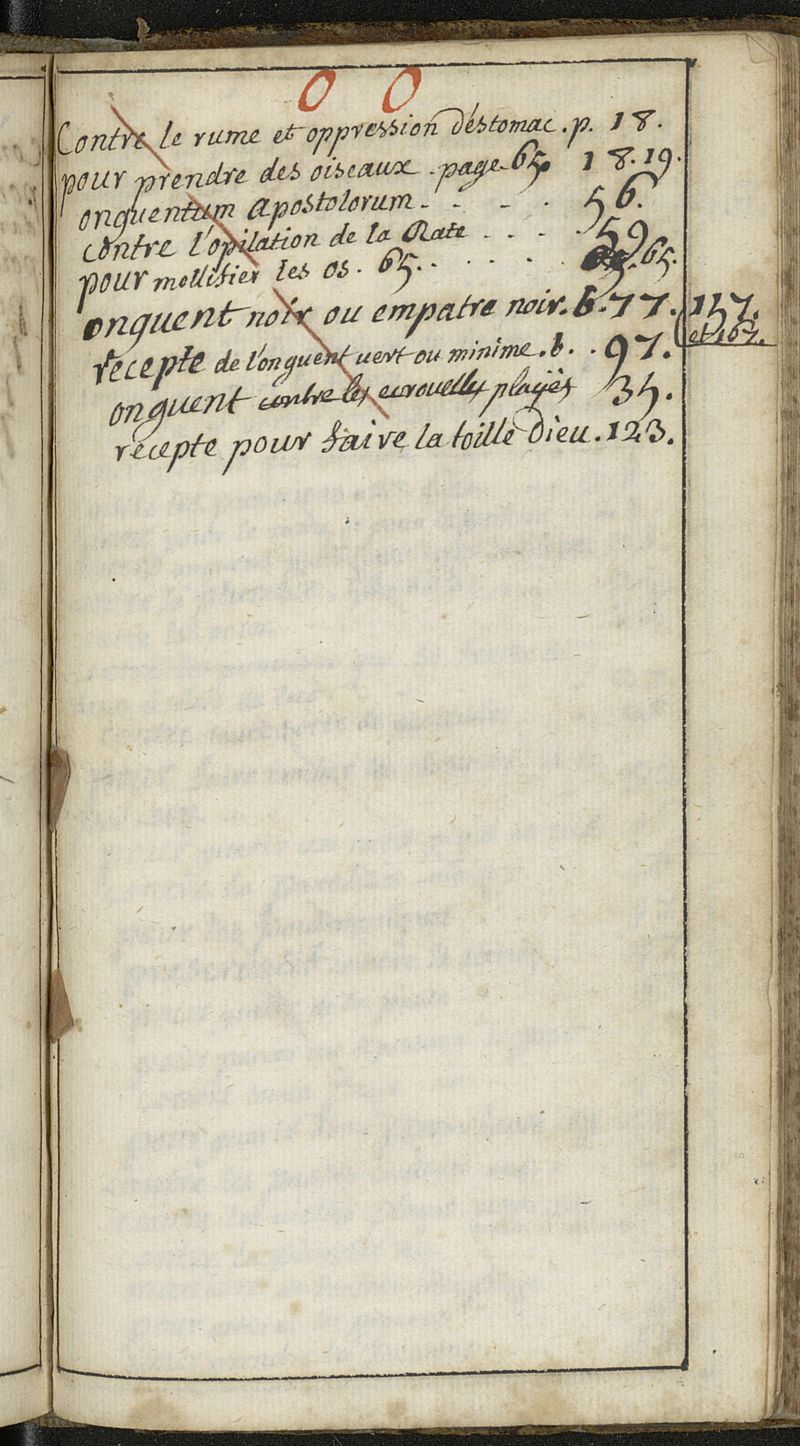 O O
Contre le rume et oppression déstomac . p. 18.
pour prendre des oiseaux . page 65. 18.19.
onguentum Apostolorum - - - - 56.
contre l'opilation de la Rate - - - . 59.
pour mollifier les os . 65. . - - - - 65.
onguent noir ou empatre noir . b. 77. 157.
et 167.
recepte de l'onguent vert ou minime . b. . 97.
onguent contre les ecrouelles playes 35.
recepte pour faire la toille Dieu . 123.